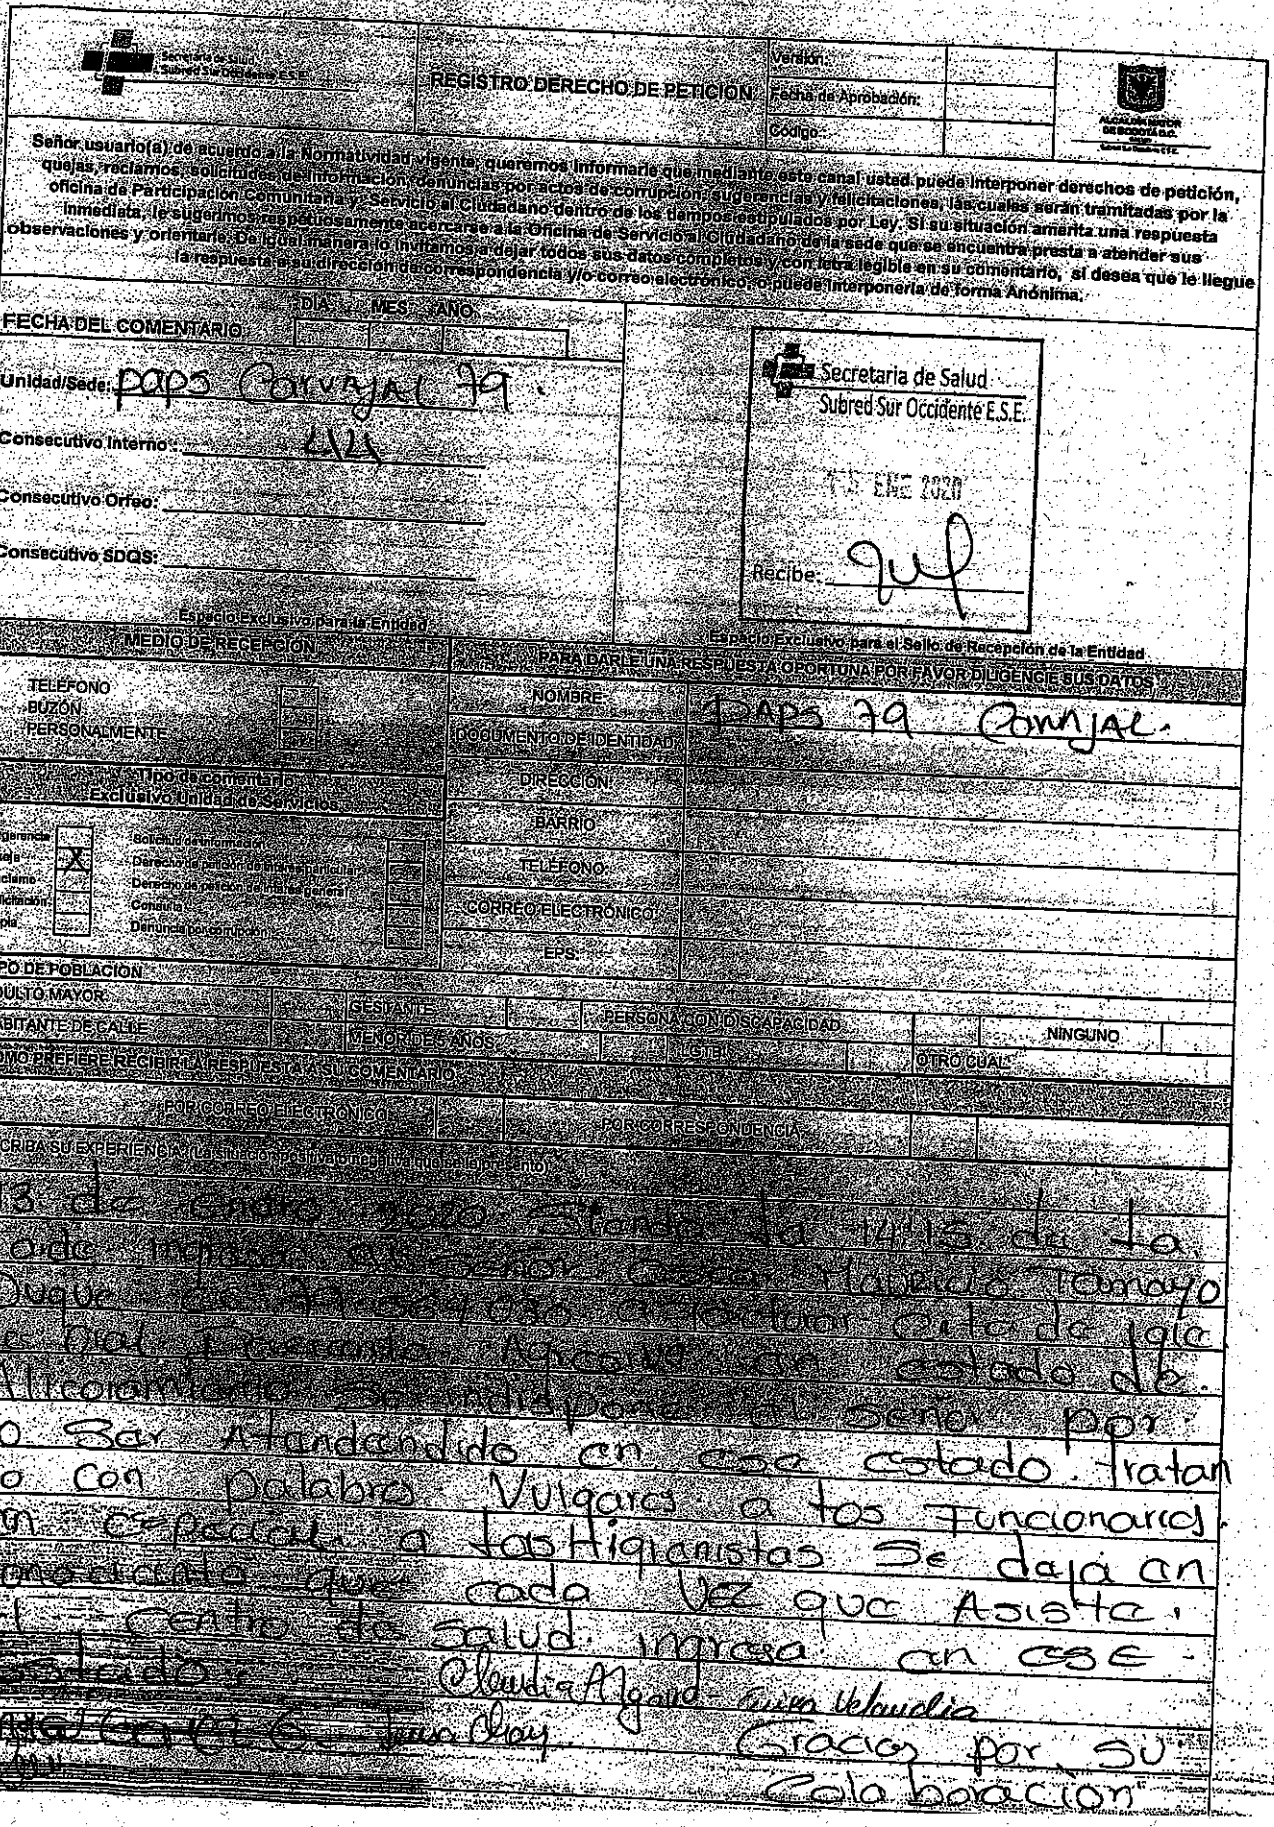 Secretaria de Salud
Subred Sur Occidente E.S.E.
REGISTRO DERECHO DE PETICIÓN
Versión:
Fecha de Aprobación:
Código:
ALCALDÍA MAYOR
DE BOGOTÁ D.C.
Señor usuario(a) de acuerdo a la Normatividad vigente, queremos informarle que mediante este canal usted puede interponer derechos de petición,
quejas, reclamos, solicitudes de información, denuncias por actos de corrupción, sugerencias y felicitaciones, las cuales serán tramitadas por la
oficina de Participación Comunitaria y Servicio al Ciudadano dentro de los tiempos estipulados por Ley. Si su situación amerita una respuesta
inmediata, le sugerimos respetuosamente acercarse a la Oficina de Servicio al Ciudadano de la sede que se encuentra presta a atender sus
observaciones y orientarle. De igual manera lo invitamos a dejar todos sus datos completos y con letra legible en su comentario, si desea que le llegue
la respuesta a su dirección de correspondencia y/o correo electrónico, o puede interponerla de forma Anónima.
DÍA MES AÑO
FECHA DEL COMENTARIO
Unidad/Sede: paps Carvajal 79.
Consecutivo Interno:
Consecutivo Orfeo:
Consecutivo SDQS:
Espacio Exclusivo para la Entidad
Secretaria de Salud
Subred Sur Occidente E.S.E.
ENE 2020
Recibe:
Espacio Exclusivo para el Sello de Recepción de la Entidad
MEDIO DE RECEPCIÓN
PARA DARLE UNA RESPUESTA OPORTUNA POR FAVOR DILIGENCIE SUS DATOS
TELÉFONO
BUZÓN
PERSONALMENTE
NOMBRE PAPS 79
DOCUMENTO DE IDENTIDAD
DIRECCIÓN:
BARRIO
TELÉFONO:
CORREO ELECTRÓNICO:
EPS:
Tipo de comentario
Exclusivo Unidad de Servicios
gerencia
eja X
clamo
licitación
pia
Solicitud de información
Derecho de petición de interés particular
Derecho de petición de interés general
Consulta
Denuncia por corrupción
PO DE POBLACIÓN
DULTO MAYOR GESTANTE PERSONA CON DISCAPACIDAD NINGUNO
ABITANTE DE CALLE MENOR DE 5 AÑOS LGTBI OTRO CUAL
OMO PREFIERE RECIBIR LA RESPUESTA A SU COMENTARIO
POR CORREO ELECTRÓNICO: POR CORRESPONDENCIA
CRIBA SU EXPERIENCIA: (La situación positiva o negativa que se le presentó)
13 de enero 2020 Siendo la 14:15 de la
arde ingresa al Señor Oscar Mauricio Tamayo
Duque a facturar cita de
Oral en estado de
se indispone el señor por
o Ser Atandendido en ese estado. tratan
o con palabras Vulgares a los Funcionarios.
n especial a las Higienistas Se deja an
que cada vez que Asista.
l centro de Salud. ingresa en ese
stado. Claudia
Gracias por su
Colaboración